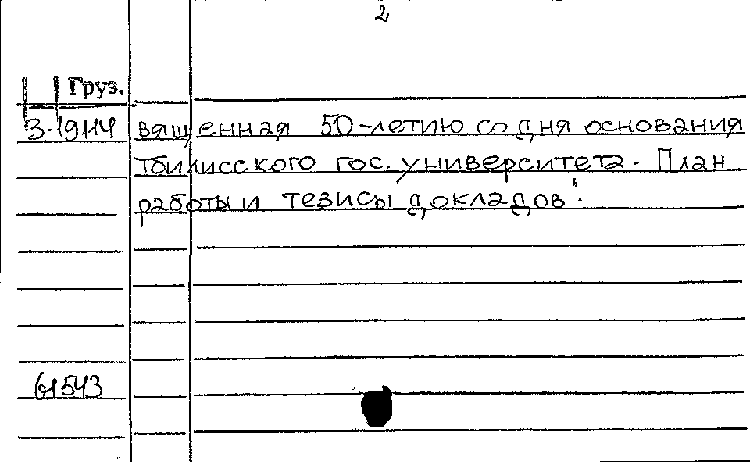 2
Груз.
З-19114 вященная 50-летию со дня основания
Тбилисского гос. университета. План
работы и тезисы докладов".
61543